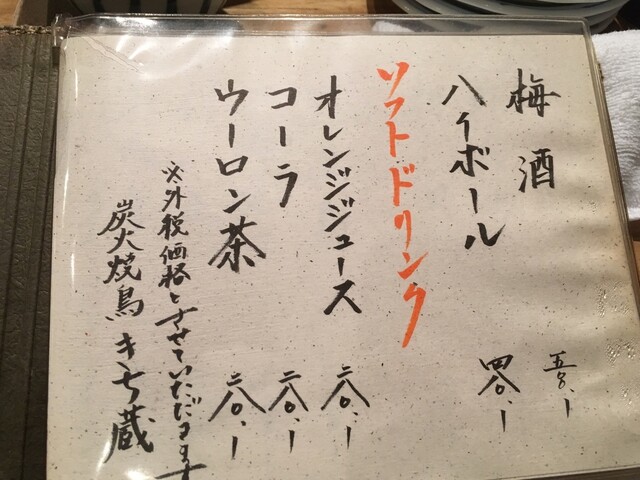 梅酒 五〇〇.ー
ハイボール 四八〇.ー
ソフトドリンク
オレンジジュース 二八〇.ー
コーラ 二八〇.ー
ウーロン茶 二八〇.ー
※外税価格とさせていただきます
炭火焼鳥 きち蔵